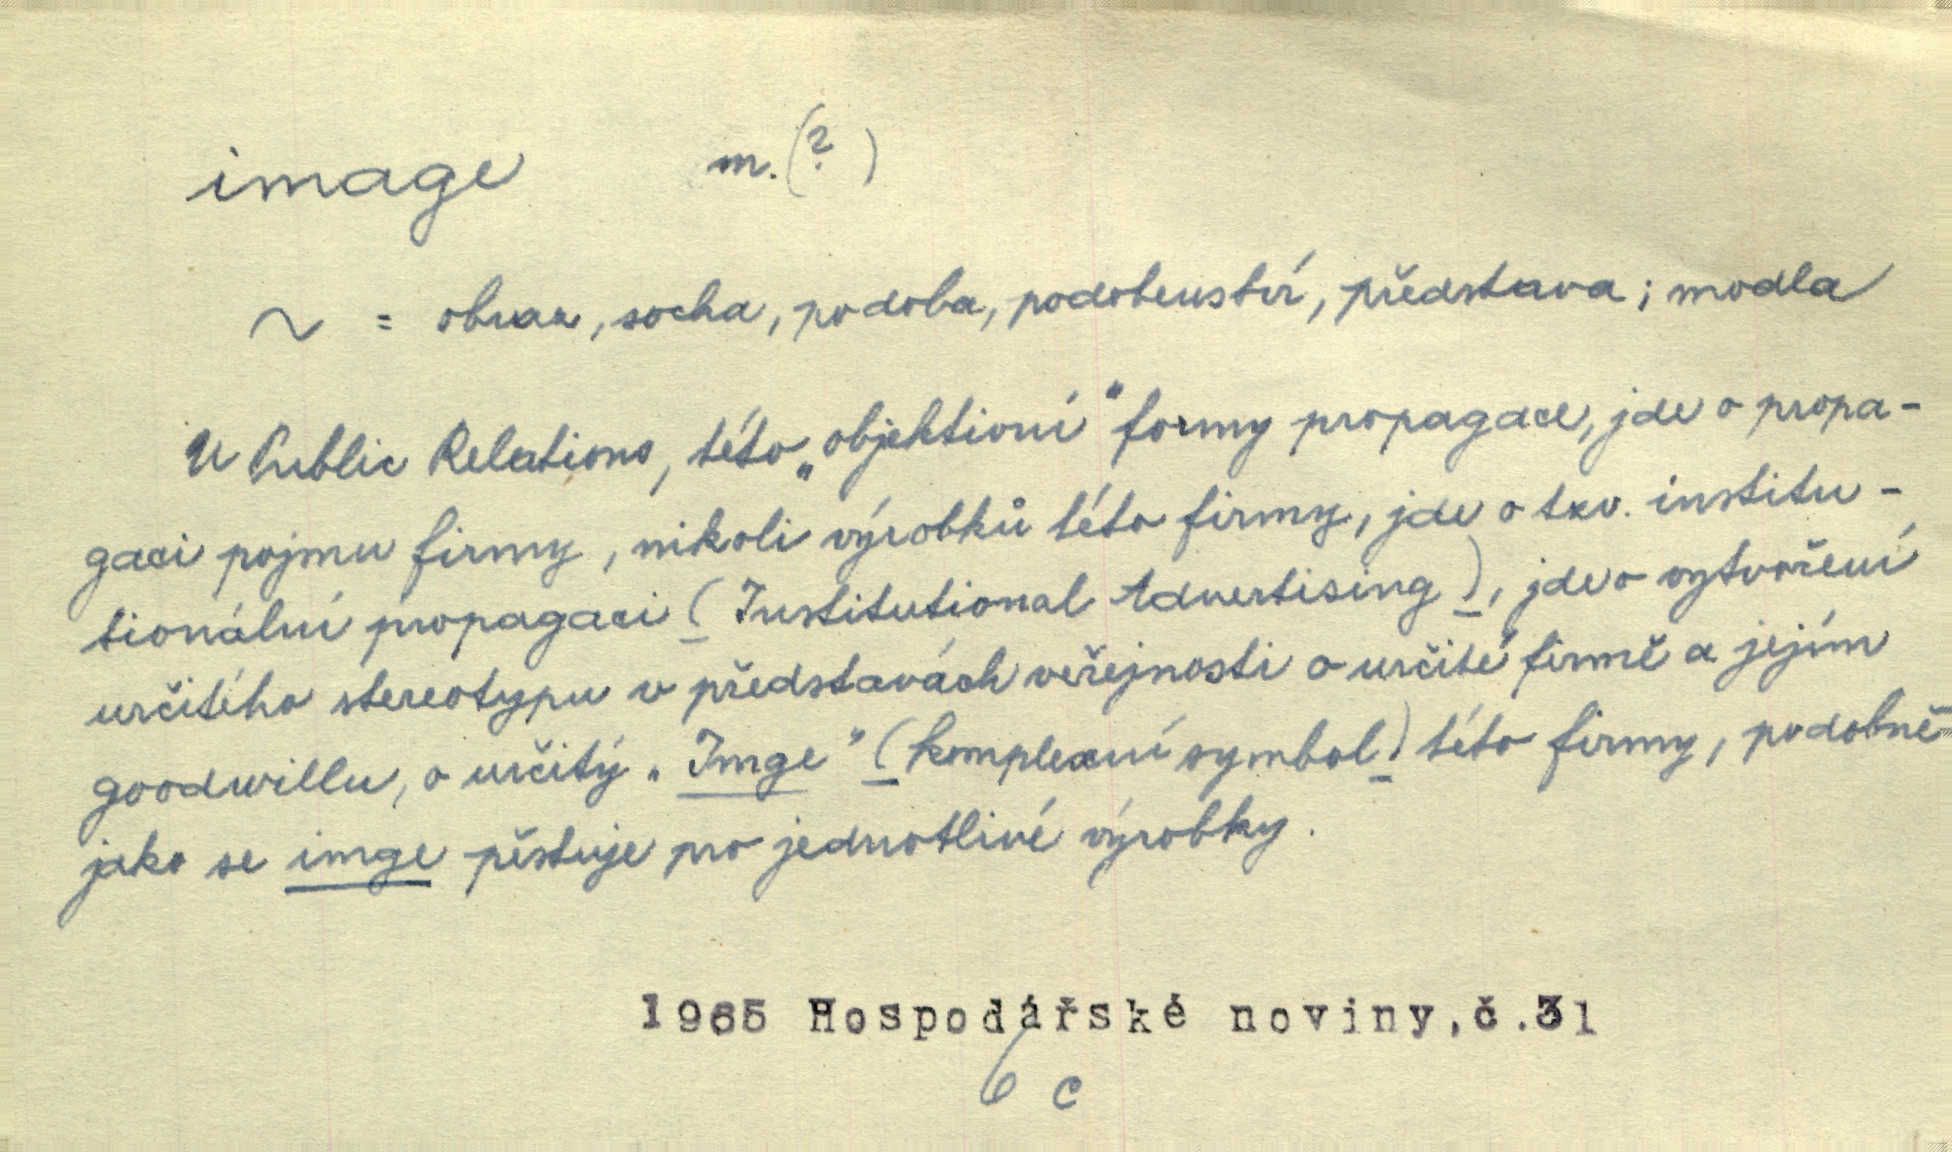 image m. (?)
~ = obraz, socha, podoba, podobenství, představa; modla
U Public Relations, této „objektivní" formy propagace, jde o propa-
gaci pojmu firmy, nikoli výrobků této firmy, jde o tzv. institu-
tionální propagaci (Institutional Advertising), jde o vytvoření
určitého stereotypu v představách veřejnosti o určité firmě a jejím
goodwillu, o určitý „Imge" (komplexní symbol) této firmy, podobně
jako se imge pěstuje pro jednotlivé výrobky.
1965 Hospodářské noviny, č. 31
6 c